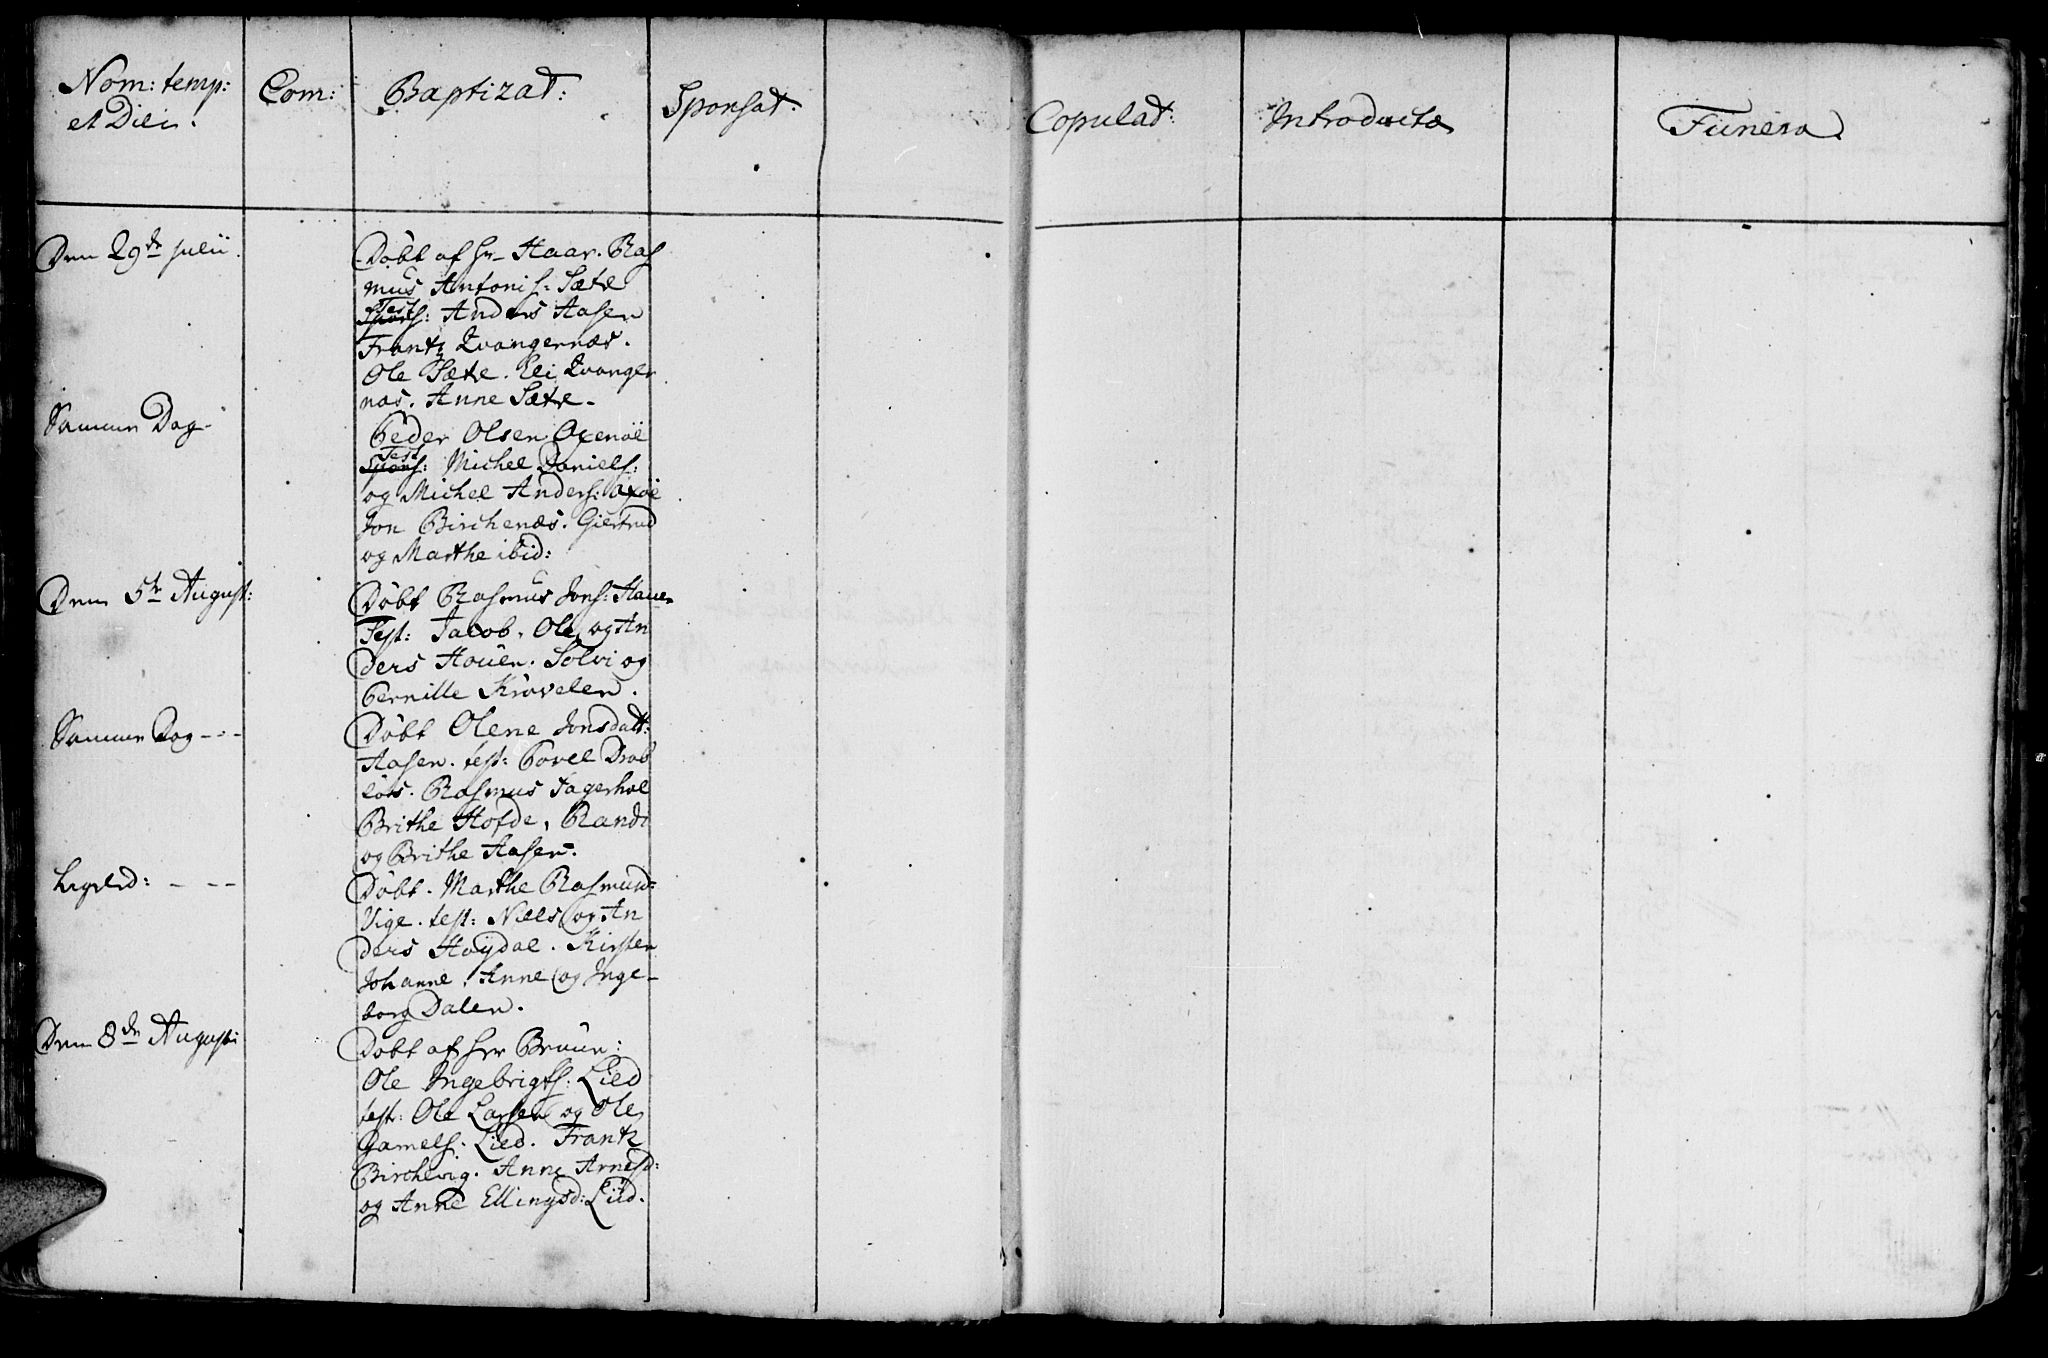 Nom: temp:
et Diei.
Com:
Baptizat:
Sponsat.
Copulat:
Introductæ
Funera.
Den 29de julii.
Døbt af Hr Haar. Ras
mus Antonis: Sætre
Test
Spons: Anders Aasen
Frantz Qvangernæs.
Ole Sætre. Eli Qvanger
næs. Anne Sætre.
Samme Dag
Peder Olsen Oxenöe
Test
Spons: Michel Daniels:
og Michel Anders: Oxöe
Jon Birchenæs. Giertrud
og Marthe ibid:
Den 5te August:
Døbt Rasmus Jons: Haue
Test: Jacob, Ole og An
ders Houen. Solvi og
Pernille Krøvelen.
Samme Dag - - -
Døbt Olene Jonsdatt:
Aasen. test: Povel Drab
løs. Rasmus Fagerhol
Brithe Hofde, Randi
og Brithe Aasen.
Ligeled: - - -
Døbt. Marthe Rasmusd:
Vige. test: Niels og An
ders Høydal. Kirsten
Johanne, Anne og Inge-
borg Dalen.
Den 8de August:
Døbt af Hr Bruun:
Ole Ingebrigts: Lied
test: Ole Larsen og Ole
Gamels: Lied. Frantz
Birchevig. Anne Arnesd:
og Anne Ellingsd: Lied.